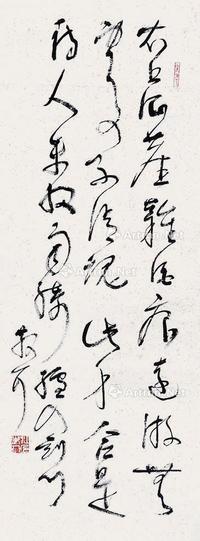 衣上征塵雜酒痕遠遊無
處不消魂此身合是
詩人未細雨騎驢入劍門
散耳